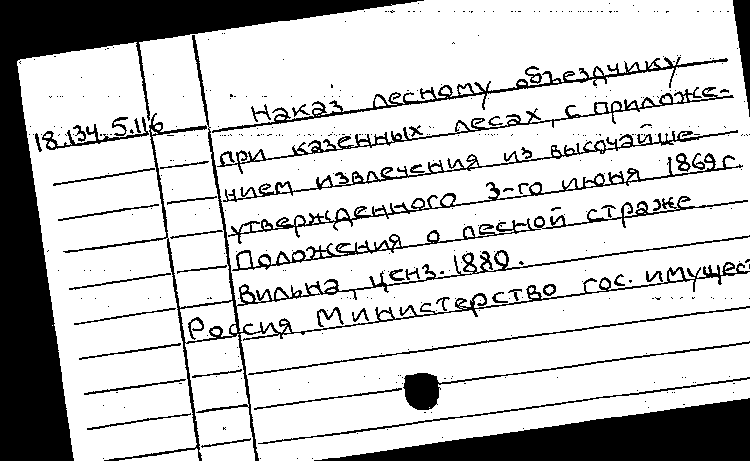 18.134.5.116
Наказ лесному объездчику
при казенных лесах, с приложе-
нием извлечения из высочайше
утвержденного 3-го июня 1869 г.
Положения о лесной страже
Вильна, ценз. 1880.
Россия. Министерство гос. имущест